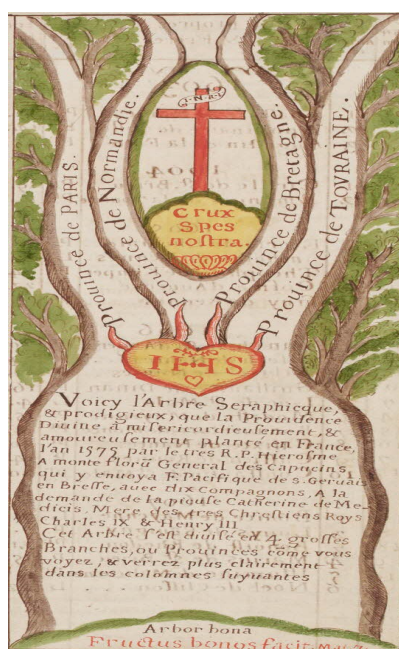 Prouince de PARIS.
Prouince de Normandie.
Prouince de Bretagne.
Prouince de TOVRAINE.
I.N.R.I
Crux
Spes
nostra.
IHS
Voicy l'Arbre Seraphicque,
& prodigieux, que la Prouidence
Diuine, a misericordieusement, &
amoureusement planté en France,
l'an 1575 par le tres R.P. Hierosme
A monte florū General des Capucins,
qui y enuoya F. Pacifique de S. Geruais
en Bresse, auec dix Compagnons, A la
demande de la pieuse Catherine de Me-
dicis, Mere des tres Chrestiens Roys
Charles IX & Henry III
Cet Arbre s'est diuisé en 4 grosses
Branches, ou Prouinces cōme vous
voyez, & verrez plus clairement
dans les colomnes suyuantes
Arbor bona
Fructus bonos facit. Mat. 7.